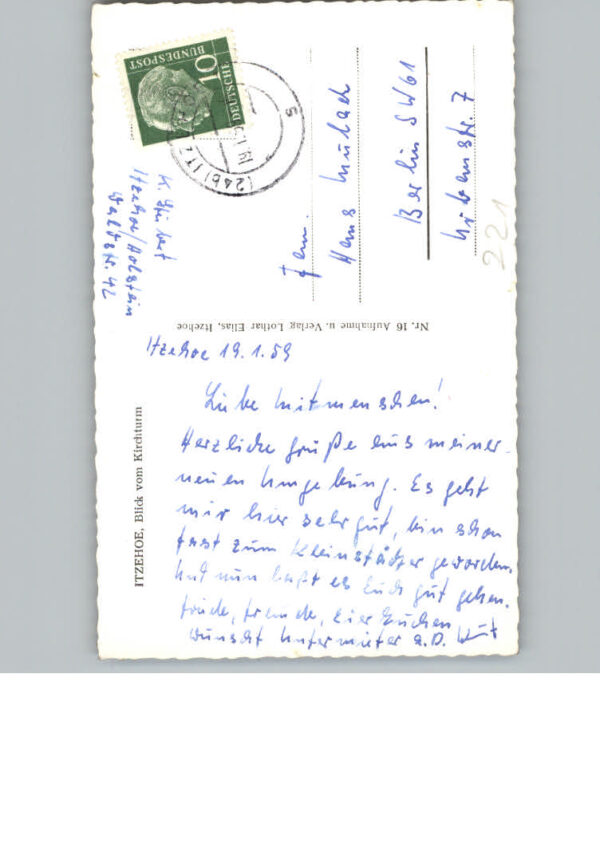 Itzehoe 19.1.59
Liebe Mitmenschen!
Herzliche Grüße aus meiner
neuen Umgebung. Es geht
mir hier sehr gut, bin schon
fast zum Kleinstädter geworden.
Und nun laßt es Euch gut gehen.
Freude, Eierkuchen
wünscht Untermieter a.D. Kurt
ITZEHOE, Blick vom Kirchturm
Nr. 16 Aufnahme u. Verlag Lothar Elias, Itzehoe
K.
Itzehoe/Holstein
Waldstr. 42
Fam.
Hans
Berlin SW 61
Urbanstr. 7
221
DEUTSCHE
BUNDESPOST
10
(24b) ITZ